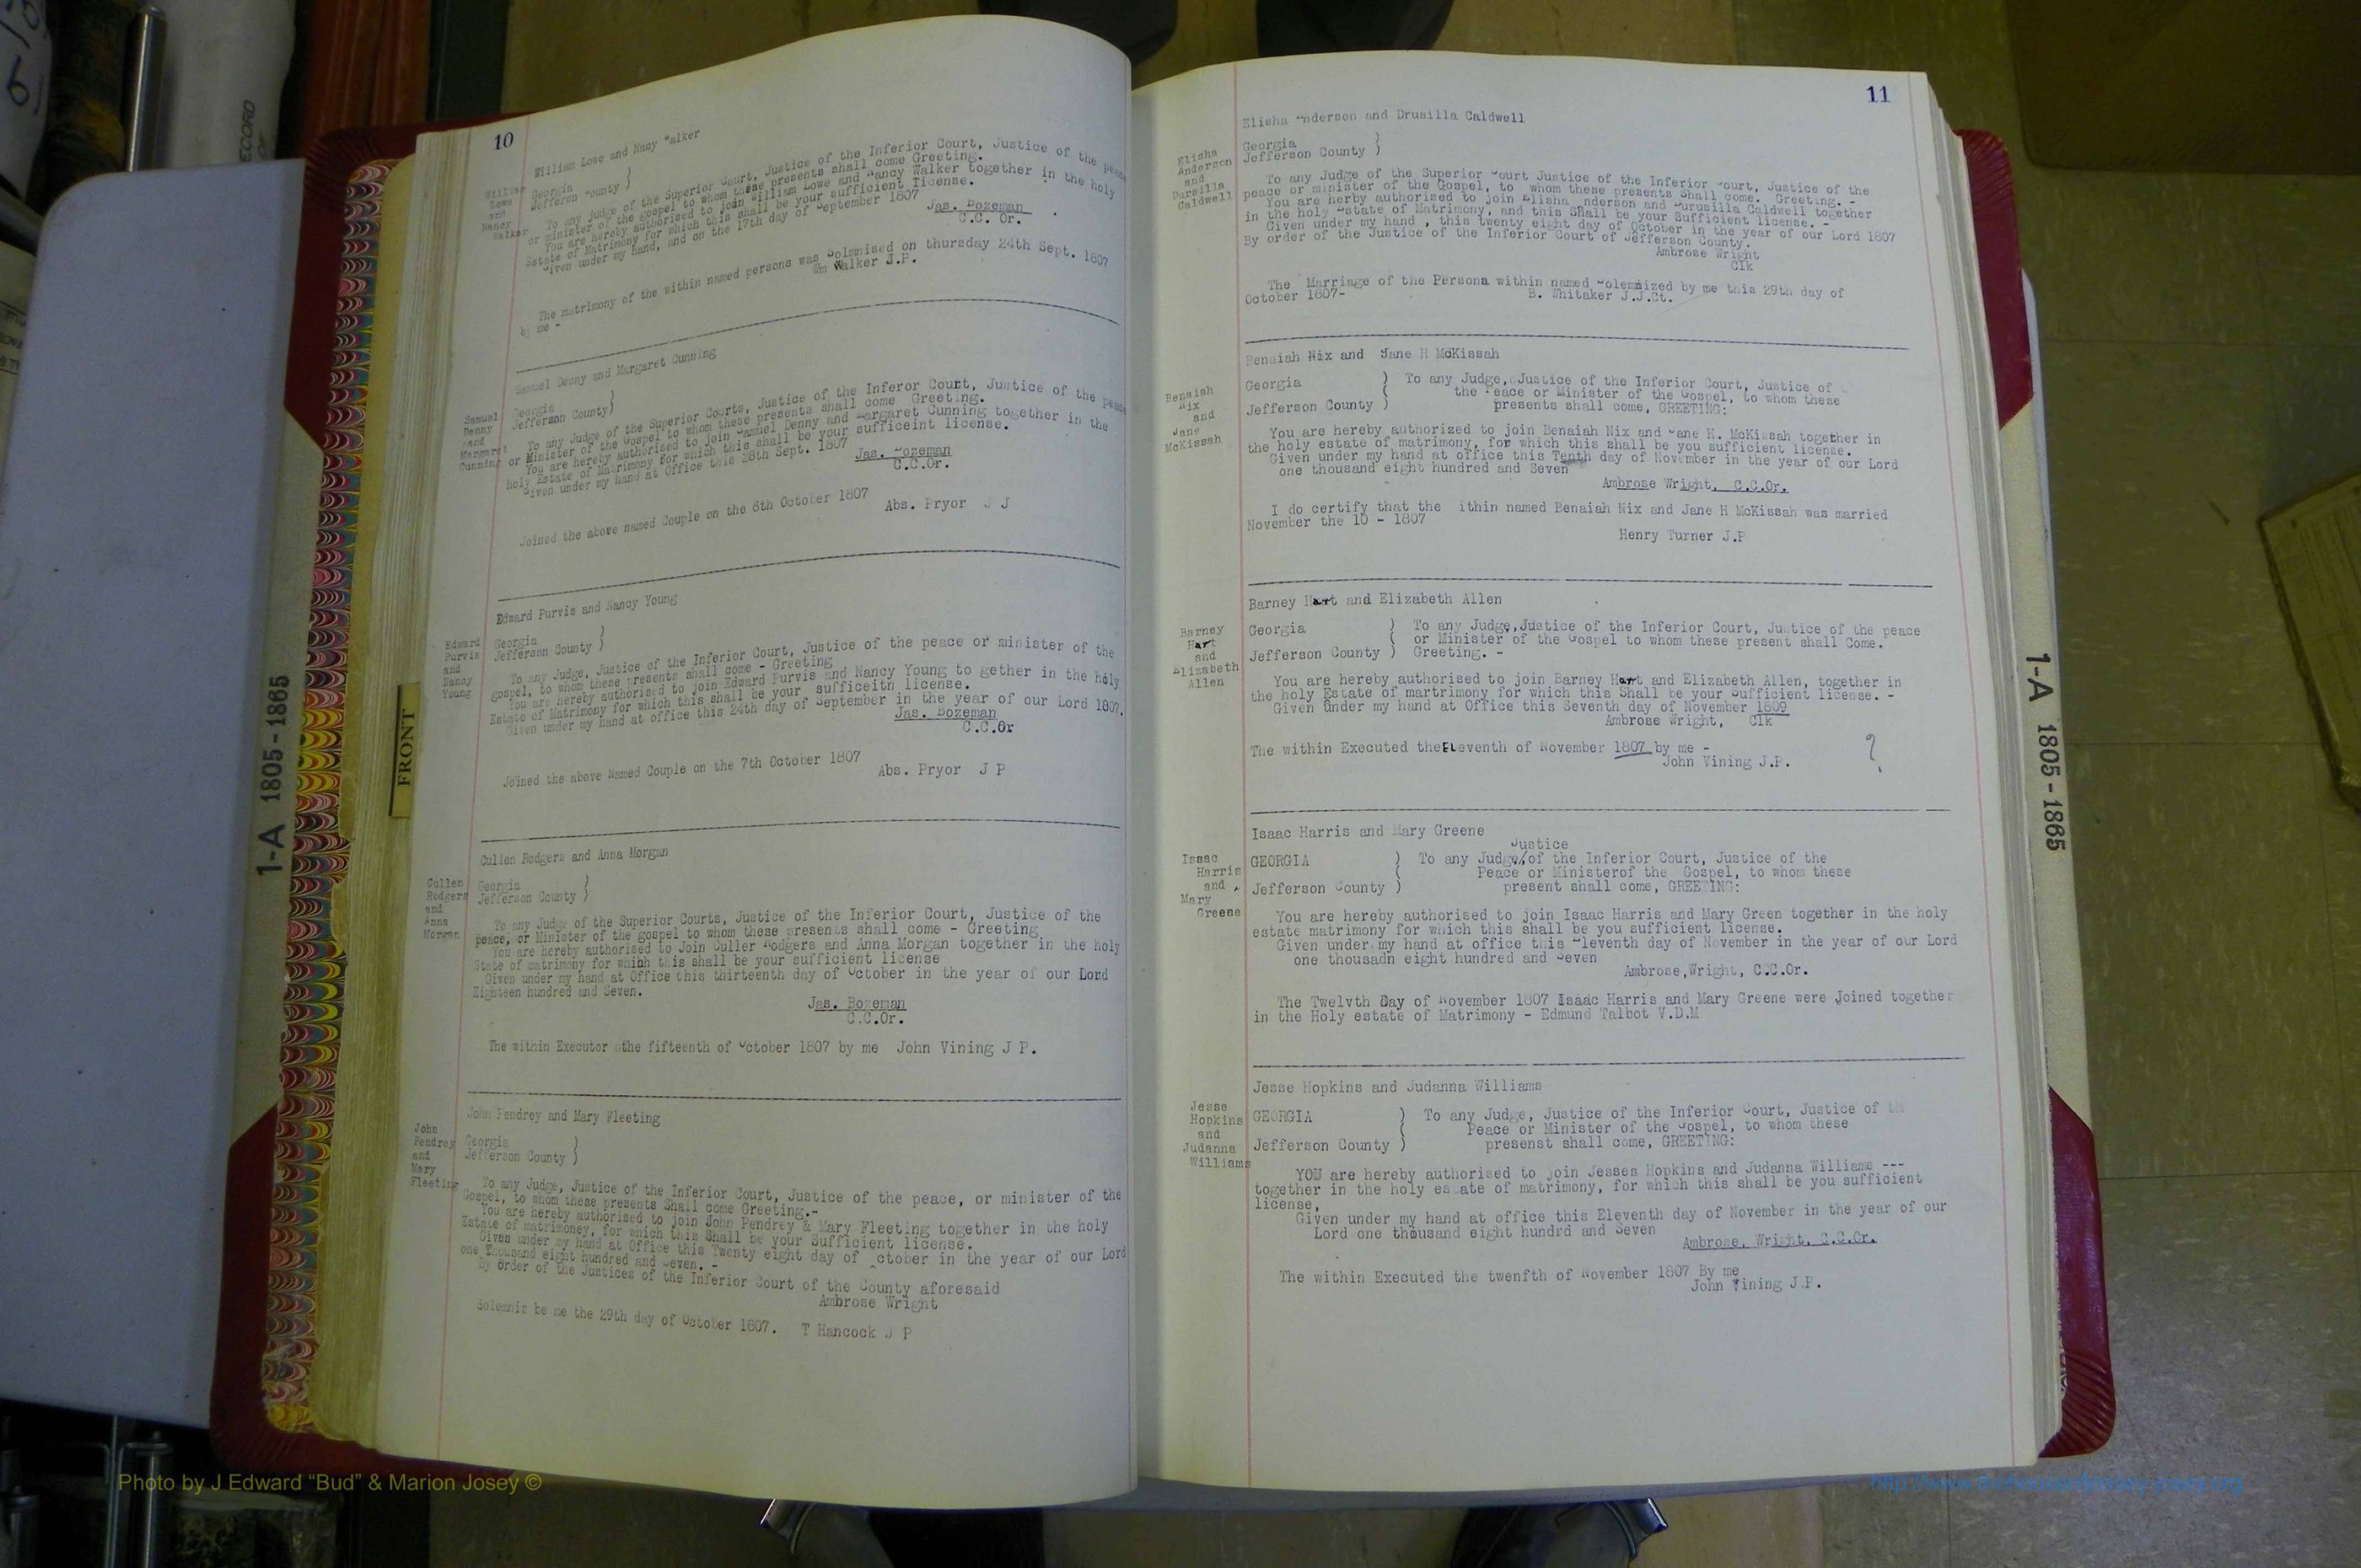 10
William Lowe and Nacy "alker
William
Lowe
and
Nancy
Walker
Georgia
Jefferson County )
To any Judge of the Superior Court, Justice of the Inferior Court, Justice of the peace
or minister of the gospel to whom these presents shall come Greeting.
You are hereby authorised to join William Lowe and Nancy Walker together in the holy
Estate of Matrimony for which this shall be your sufficient license.
Given under my hand, and on the 17th day of September 1807
Jas. Bozeman
C.C. Or.
The matrimony of the within named persons was Solmnised on thursday 24th Sept. 1807
by me -
Wm Walker J.P.
Samuel Denny and Margaret Cunning
Samuel
Denny
and
Margaret
Cunning
Georgia
Jefferson County)
To any Judge of the Superior Courts, Justice of the Inferor Court, Justice of the peace
or Minister of the Gospel to whom these presents shall come Greeting.
You are hereby authorised to join Samuel Denny and Margaret Cunning together in the
holy Estate of Matrimony for which this shall be your sufficeint license.
Given under my hand at Office this 28th Sept. 1807
Jas. Bozeman
C.C.Or.
Joined the above named Couple on the 6th October 1807
Abs. Pryor J J
Edward Purvis and Nancy Young
Edward
Purvis
and
Nancy
Young
Georgia
Jefferson County )
To any Judge, Justice of the Inferior Court, Justice of the peace or minister of the
gospel, to whom these presents shall come - Greeting
You are hereby authorised to join Edward Purvis and Nancy Young to gether in the holy
Estate of Matrimony for which this shall be your sufficeitn license.
Given under my hand at office this 24th day of September in the year of our Lord 1807.
Jas. Bozeman
C.C.Or
Joined the above Named Couple on the 7th October 1807
Abs. Pryor J P
Cullen Rodgers and Anna Morgan
Cullen
Rodgers
and
Anna
Morgan
Georgia
Jefferson County )
To any Judge of the Superior Courts, Justice of the Inferior Court, Justice of the
peace, or Minister of the gospel to whom these presents shall come - Greeting
You are hereby authorised to Join Culler Rodgers and Anna Morgan together in the holy
State of matrimony for whihh this shall be your sufficient license
Given under my hand at Office this thirteenth day of October in the year of our Lord
Eighteen hundred and Seven.
Jas. Bozeman
C.C.Or.
The within Executor othe fifteenth of October 1807 by me John Vining J P.
John Pendrey and Mary Fleeting
John
Pendrey
and
Mary
Fleeting
Georgia
Jefferson County )
To any Judge, Justice of the Inferior Court, Justice of the peace, or minister of the
Gospel, to whom these presents Shall come Greeting.-
You are hereby authorised to join John Pendrey & Mary Fleeting together in the holy
Estate of matrimoney, for which this Shall be your Sufficient license.
Given under my hand at Office this Twenty eight day of ctober in the year of our Lord
one Thousand eight hundred and Seven. -
By order of the Justices of the Inferior Court of the County aforesaid
Ambrose Wright
Solemniz be me the 29th day of October 1807. T Hancock J P
11
Elisha Anderson and Drusilla Caldwell
Elisha
Anderson
and
Dursilla
Caldwell
Georgia )
Jefferson County )
To any Judge of the Superior Court Justice of the Inferior Court, Justice of the
peace or minister of the Gospel, to whom these presents Shall come. Greeting. -
You are herby authorised to join Elisha Anderson and Durusilla Caldwell together
in the holy Estate of Matrimony, and this Shall be your Sufficient license. -
Given under my hand , this twenty eight day of October in the year of our Lord 1807
By order of the Justice of the Inferior Court of Jefferson County.
Ambrose Wright
Clk
The Marriage of the Persona within named Solemnized by me this 29th day of
October 1807-
B. Whitaker J.J.Ct.
Benaiah Nix and Jane H McKissah
Benaiah
Nix
and
Jane
McKissah
Georgia ) To any Judge, Justice of the Inferior Court, Justice of
( the Peace or Minister of the Gospel, to whom these
Jefferson County ) presents shall come, GREETING:
You are hereby authorized to join Benaiah Nix and Jane H. McKissah together in
the holy estate of matrimony, for which this shall be you sufficient license.
Given under my hand at office this Tenth day of November in the year of our Lord
one thousand eight hundred and Seven
Ambrose Wright, C.C.Or.
I do certify that the ithin named Benaiah Nix and Jane H McKissah was married
November the 10 - 1807
Henry Turner J.P
Barney Hart and Elizabeth Allen
Barney
Hart
and
Elizabeth
Allen
Georgia ) To any Judge, Justice of the Inferior Court, Justice of the peace
( or Minister of the Gospel to whom these present shall Come.
Jefferson County ) Greeting. -
You are hereby authorised to join Barney Hart and Elizabeth Allen, together in
the holy Estate of martrimony for which this Shall be your Sufficient license. -
Given under my hand at Office this Seventh day of November 1809
Ambrose Wright, Clk
The within Executed the Eleventh of November 1807 by me - ?
John Vining J.P.
Isaac Harris and Mary Greene
Isaac
Harris
and
Mary
Greene
Justice
GEORGIA ) To any Judge/of the Inferior Court, Justice of the
( Peace or Ministerof the Gospel, to whom these
Jefferson County ) present shall come, GREETING:
You are hereby authorised to join Isaac Harris and Mary Green together in the holy
estate matrimony for which this shall be you sufficient license.
Given under my hand at office this Eleventh day of November in the year of our Lord
one thousadn eight hundred and Seven
Ambrose,Wright, C.C.Or.
The Twelvth Day of November 1807 Isaac Harris and Mary Greene were Joined together
in the Holy estate of Matrimony - Edmund Talbot V.D.M
Jesse Hopkins and Judanna Williams
Jesse
Hopkins
and
Judanna
Williams
GEORGIA ) To any Judge, Justice of the Inferior Court, Justice of the
( Peace or Minister of the Gospel, to whom these
Jefferson County ) presenst shall come, GREETING:
YOU are hereby authorised to join Jesses Hopkins and Judanna Williams ---
together in the holy estate of matrimony, for which this shall be you sufficient
license,
Given under my hand at office this Eleventh day of November in the year of our
Lord one thousand eight hundrd and Seven
Ambrose, Wright, C.C.Or.
The within Executed the twenfth of November 1807 By me
John Vining J.P.
FRONT
1-A 1805-1865
1-A 1805-1865
RECORD
OF
Photo by J Edward “Bud” & Marion Josey ©